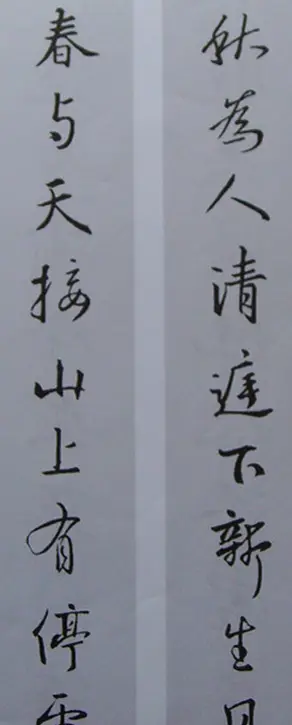 秋為人清庭下新生月
春与天接山上有停